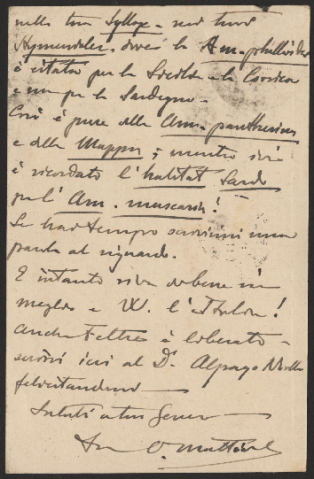 nella tua Sylloge - nel vol
Hymeniales, dove la Am. phalloides
è citata per la Sicilia e la Corsica
e non per la Sardegna -
Così è pure della Am. pantherina
e della Mappa; mentre si
è ricordato l'habitat Sardo
per l'Am. muscaria!
Se hai tempo scrivimi una
parola al riguardo.
E intanto di bene in
meglio e W. l'Italia!
Anche Feltre è liberata -
scrissi ieri al Dr. Alpago Novello
felicitandomi -
Saluti a tuo Genero -
O. Mattirolo